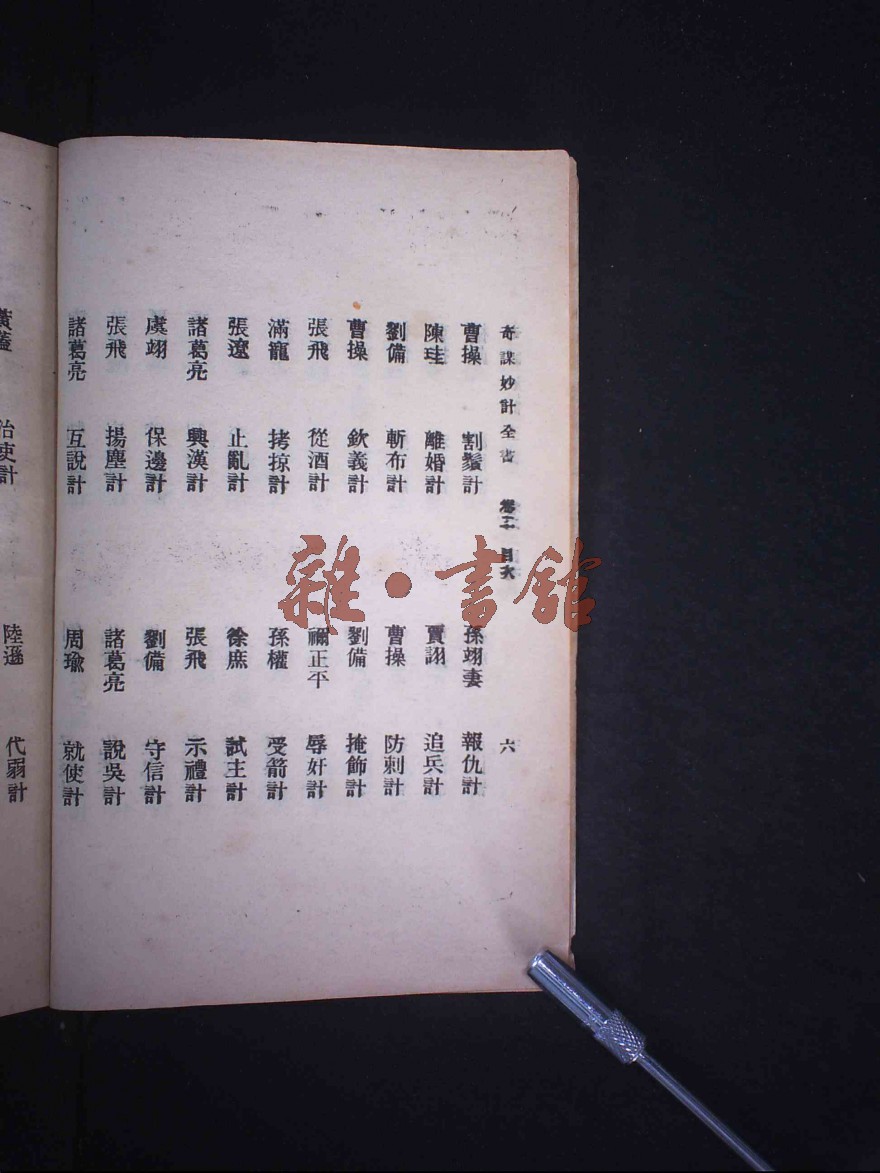 奇謀妙計全書 卷二十 目次 六
曹操 割鬚計 孫翊妻 報仇計
陳珪 離婚計 賈詡 追兵計
劉備 斬布計 曹操 防刺計
曹操 欽義計 劉備 掩飾計
張飛 從酒計 禰正平 辱奸計
滿寵 拷掠計 孫權 受箭計
張遼 止亂計 徐庶 試主計
諸葛亮 興漢計 張飛 示禮計
虞翊 保邊計 劉備 守信計
張飛 揚塵計 諸葛亮 說吳計
諸葛亮 互說計 周瑜 就使計
黃蓋 治吏計 陸遜 代弱計
雜·書館